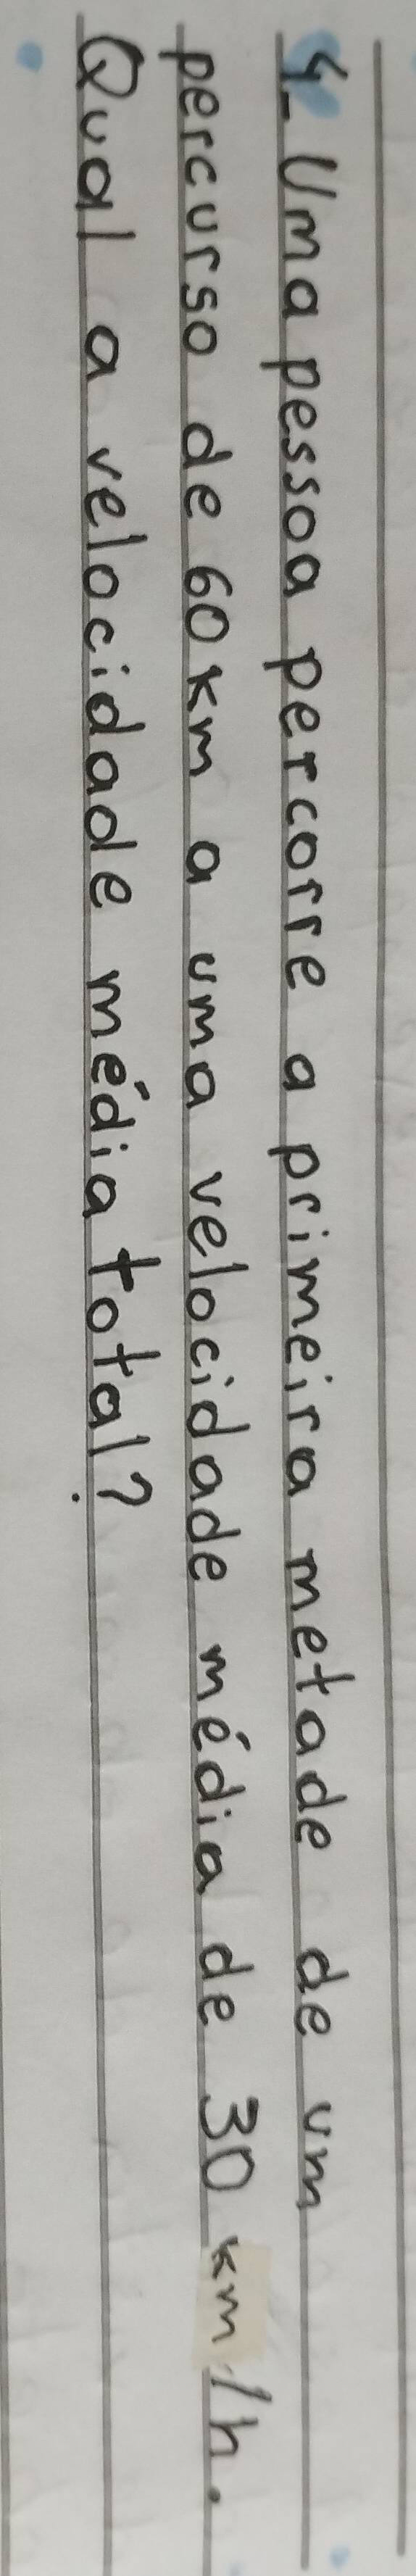 4- Uma pessoa percorre a primeira metade de um
percurso de 60km a uma velocidade média de 30 km/h.
Qual a velocidade média total?